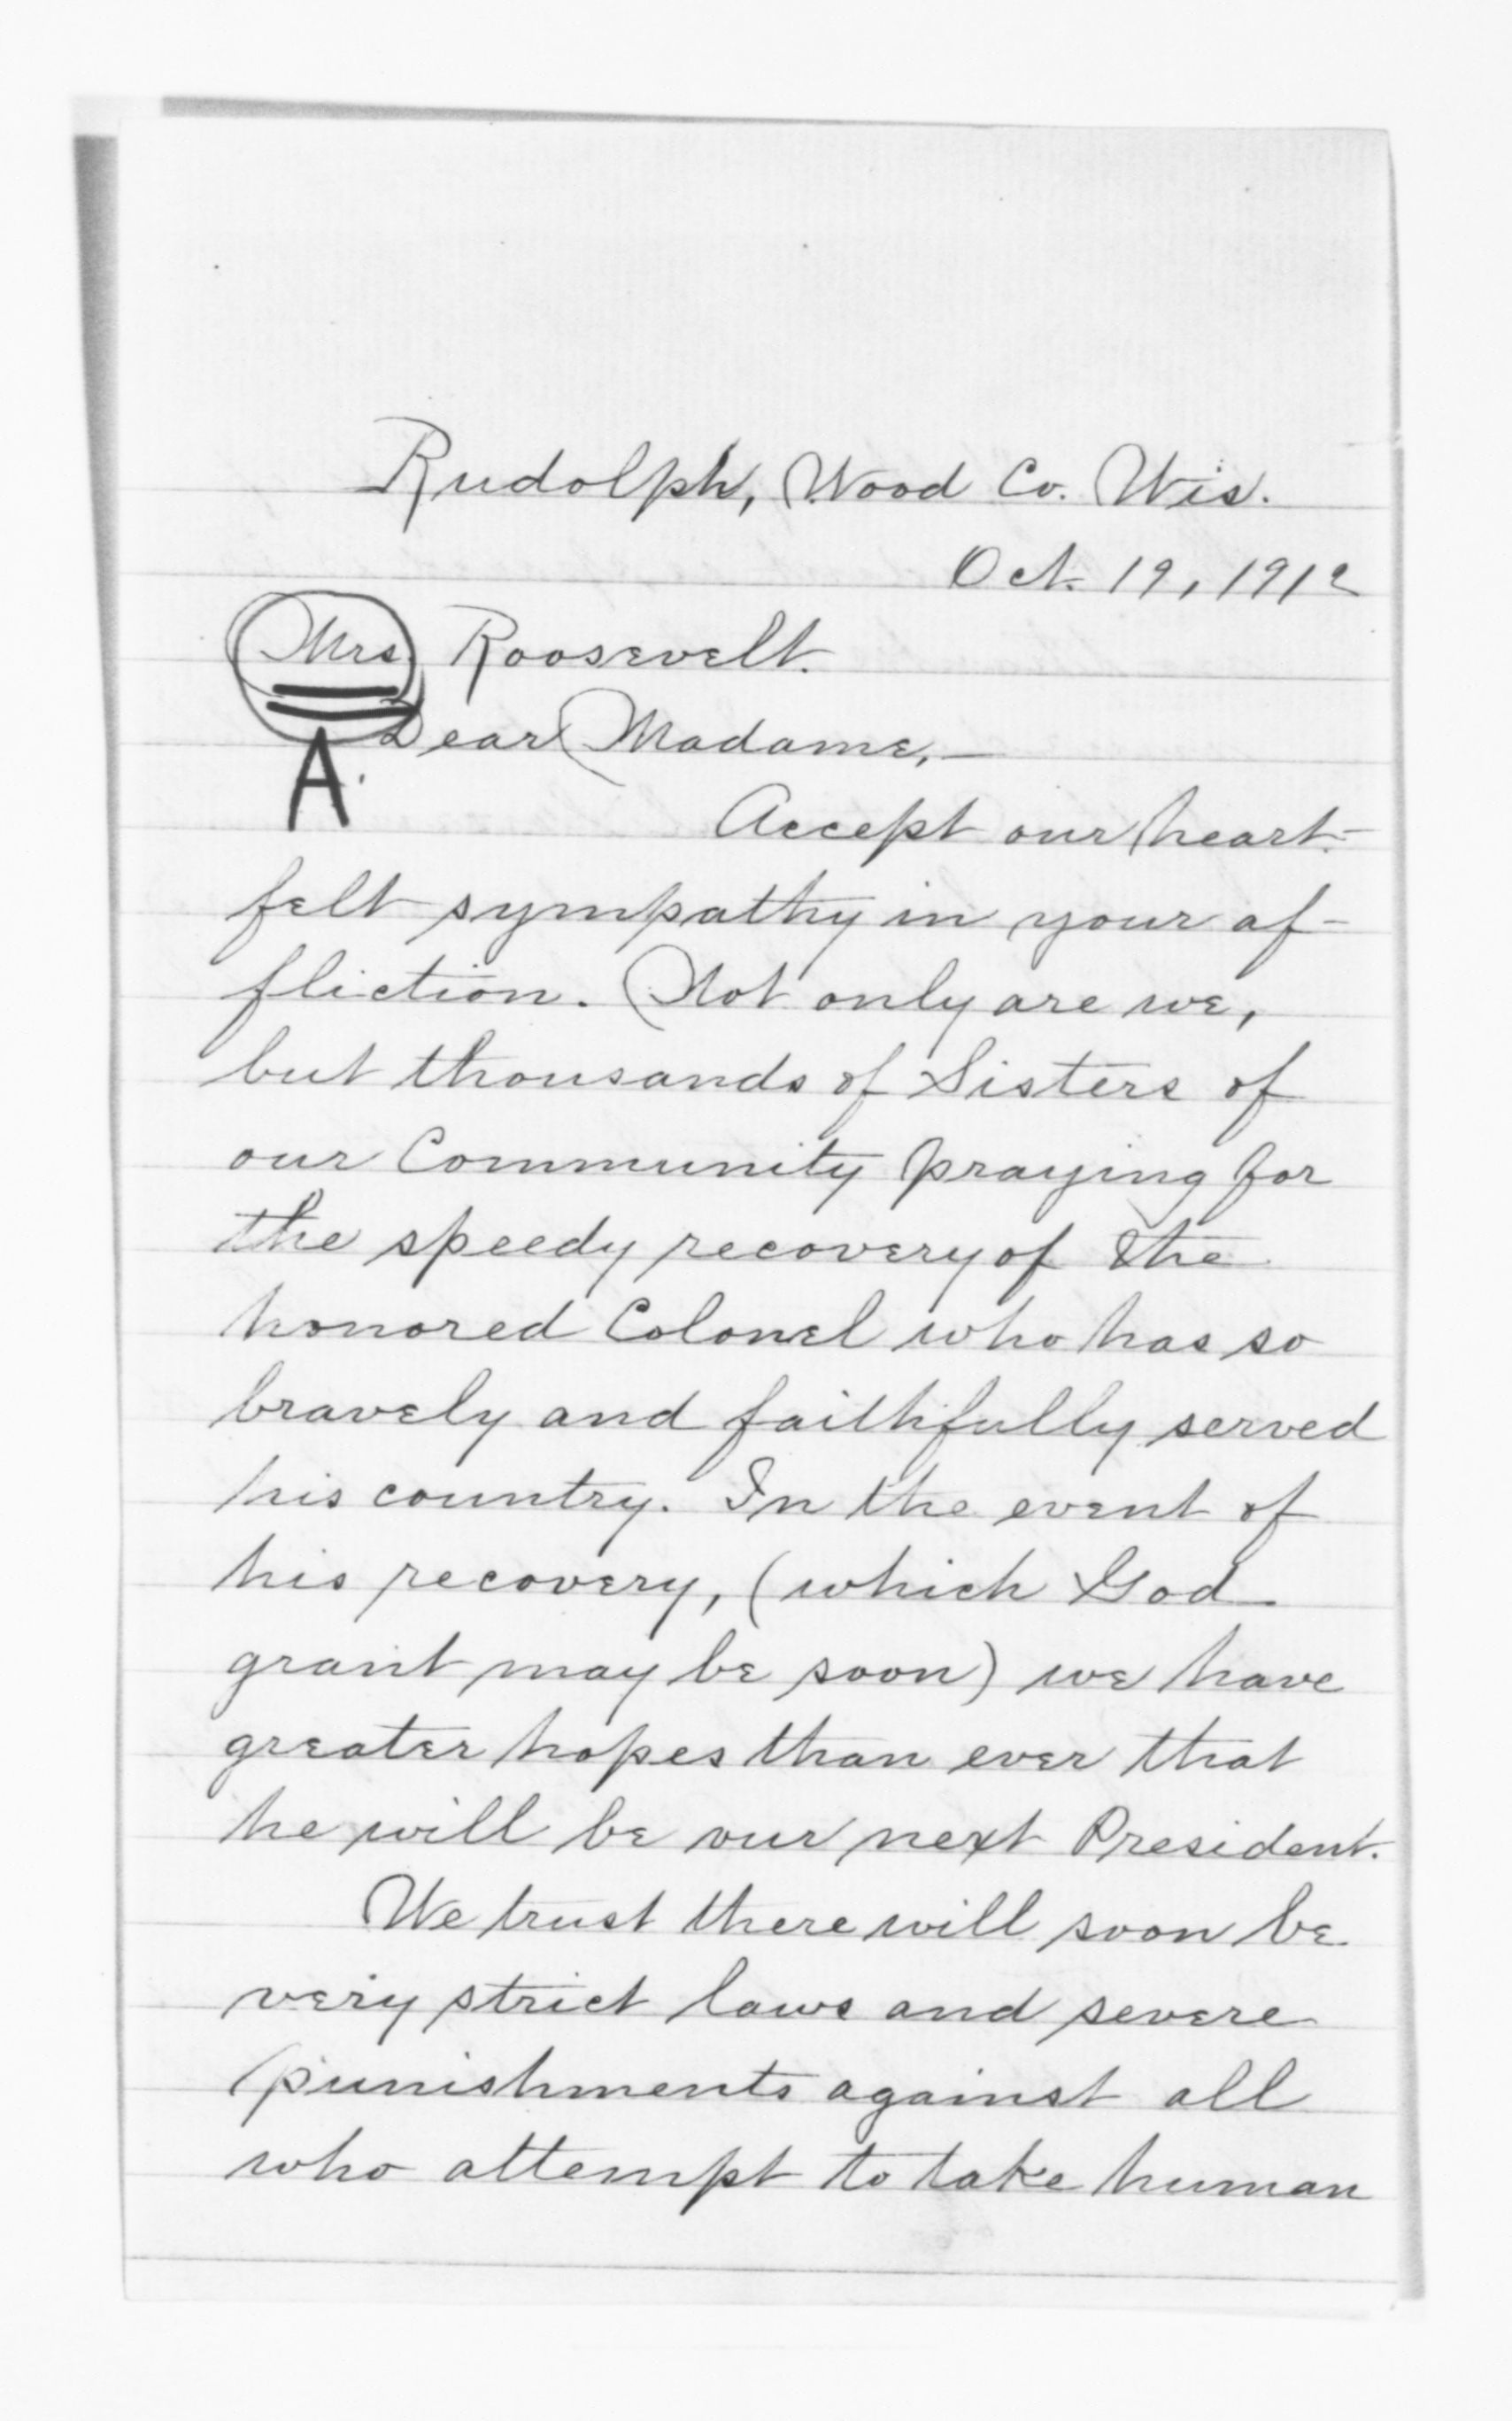 Rudolph, Wood Co. Wis.
Oct. 19, 1912
Mrs. Roosevelt.
Dear Madame,—
A.
Accept our heart-
felt sympathy in your af-
fliction. Not only are we,
but thousands of Sisters of
our Community praying for
the speedy recovery of the
honored Colonel who has so
bravely and faithfully served
his country. In the event of
his recovery, (which God
grant may be soon) we have
greater hopes than ever that
he will be our next President.
We trust there will soon be
very strict laws and severe
punishments against all
who attempt to take human